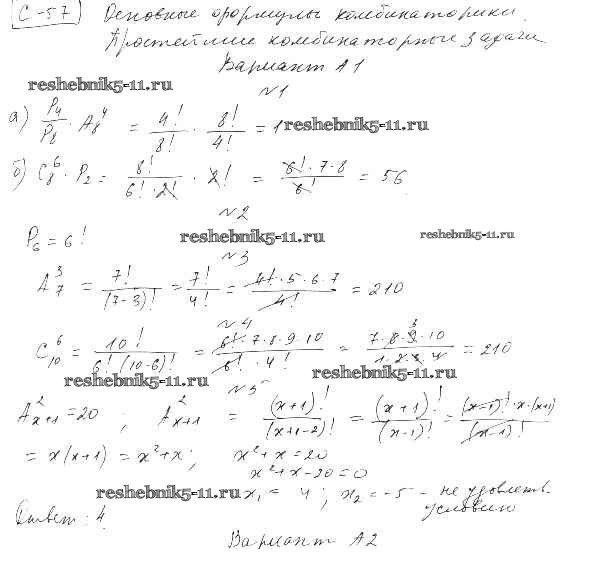 С-57 Основные формулы комбинаторики.
Простейшие комбинаторные задачи
Вариант А1
reshebnik5-11.ru
№1
а) P₄/P₈ · A₈⁴ = 4!/8! · 8!/4! = 1
reshebnik5-11.ru
б) C₈⁶ · P₂ = 8!/(6!·2!) · 2! = 6!·7·8/6! = 56
№2
P₆ = 6!
reshebnik5-11.ru
reshebnik5-11.ru
№3
A₇³ = 7!/(7-3)! = 7!/4! = 4!·5·6·7/4! = 210
№4
C₁₀⁶ = 10!/(6!(10-6)!) = 6!·7·8·9·10/(6!·4!) = 7·8·9·10/(1·2·3·4) = 210
3
reshebnik5-11.ru
reshebnik5-11.ru
№5
A²ₓ₊₁ = 20 ; A²ₓ₊₁ = (x+1)!/(x+1-2)! = (x+1)!/(x-1)! = (x-1)!·x·(x+1)/(x-1)!
= x(x+1) = x²+x; x²+x=20
x²+x-20=0
reshebnik5-11.ru x₁ = 4; x₂ = -5 - не удовлетв.
условию
Ответ: 4
Вариант А2